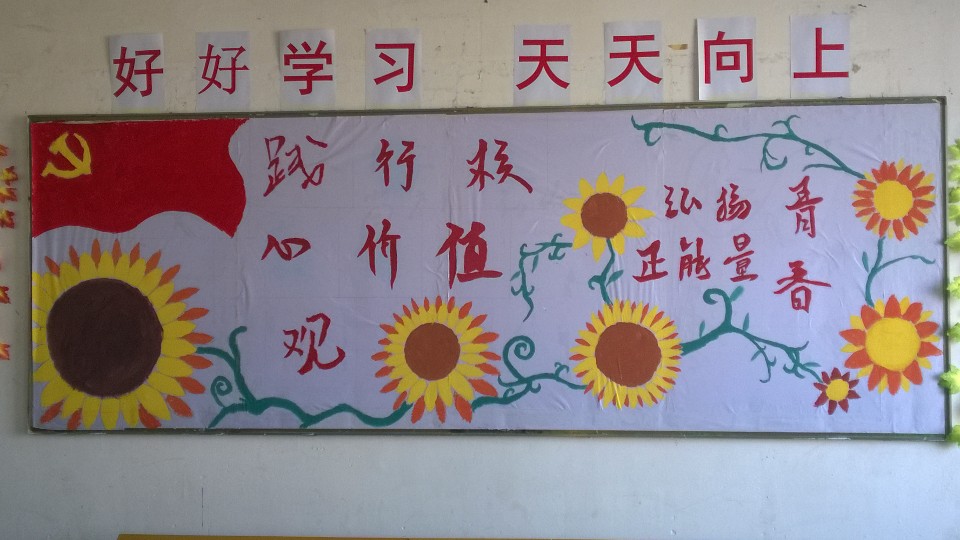 好好学习 天天向上
践行核
心价值
观
弘扬
青春
正能量